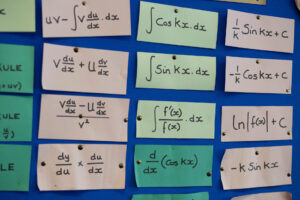 uv - ∫v du/dx . dx
∫ Cos kx . dx
1/k Sin kx + C
RULE
v du/dx + u dv/dx
∫ Sin kx . dx
-1/k Cos kx + C
v du/dx - u dv/dx / v²
∫ f'(x)/f(x) . dx
ln|f(x)| + C
LE
dy/du × du/dx
d/dx (cos kx)
-k Sin kx